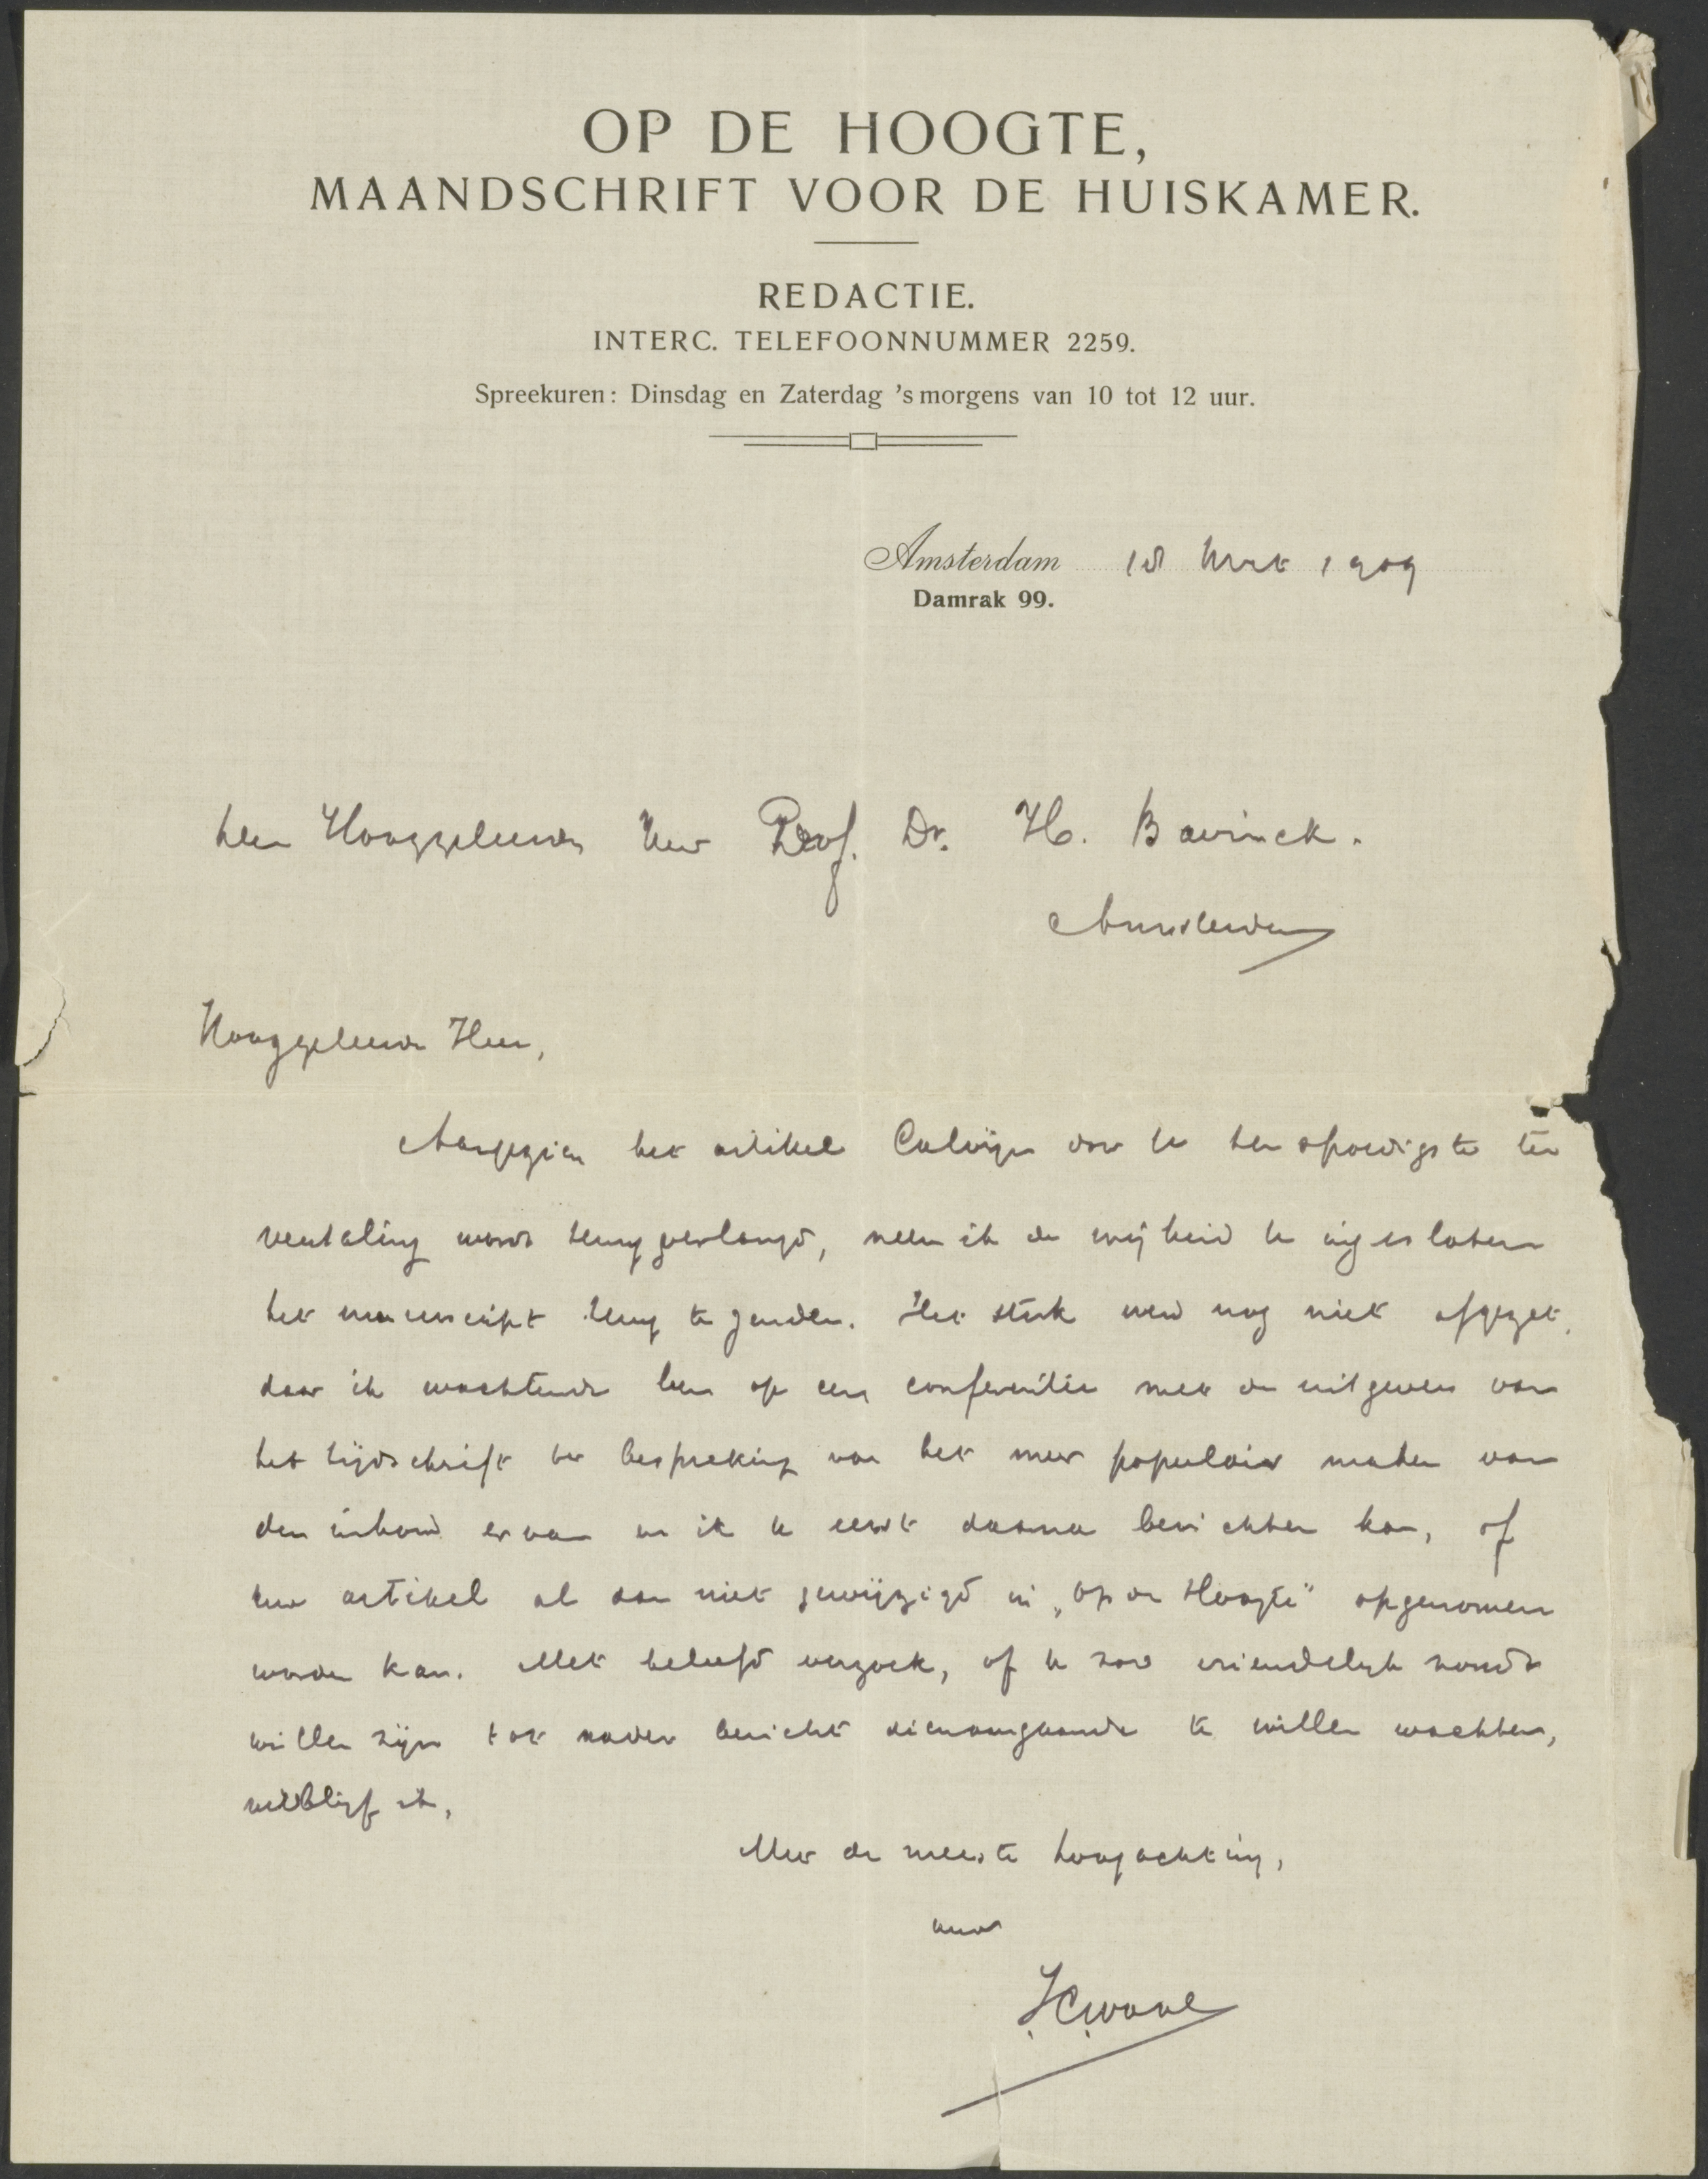 OP DE HOOGTE,
MAANDSCHRIFT VOOR DE HUISKAMER.
REDACTIE.
INTERC. TELEFOONNUMMER 2259.
Spreekuren: Dinsdag en Zaterdag 's morgens van 10 tot 12 uur.
Amsterdam 18 Mrt 1909
Damrak 99.
Den Hooggeleerden Heer Prof. Dr. H. Bavinck.
Amsterdam
Hooggeleerde Heer,
Aangezien het artikel Calvijn door U ten spoedigste ter
vertaling wordt terugverlangd, neem ik de vrijheid U ingesloten
het manuscript terug te zenden. Het stuk werd nog niet afgezet,
daar ik wachtende ben op een conferentie met de uitgevers van
het tijdschrift ter bespreking van het meer populair maken van
den inhoud ervan en ik U eerst daarna berichten kan, of
uw artikel al dan niet gewijzigd in „Op de Hoogte" opgenomen
worden kan. Met beleefd verzoek, of U zoo vriendelijk zoudt
willen zijn tot nader bericht dienaangaande te willen wachten,
verblijf ik,
Met de meeste hoogachting,